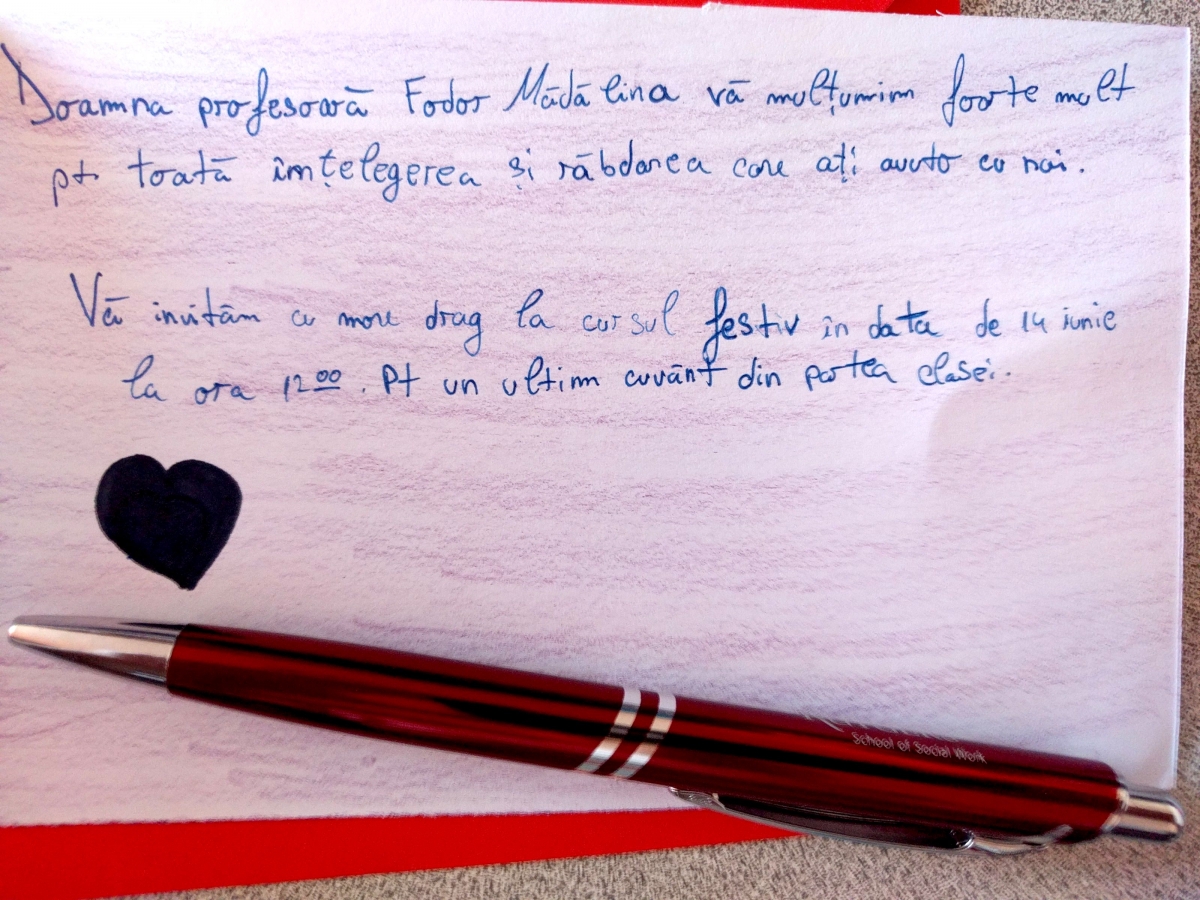 Doamna profesoară Fodor Mădălina vă mulțumim foarte mult
pt. toată îmțelegerea și răbdarea care ați avuto cu noi.
Vă invităm cu mare drag la cursul festiv în data de 14 iunie
la ora 12⁰⁰. Pt un ultim cuvânt din partea clasei.
School of Social Work